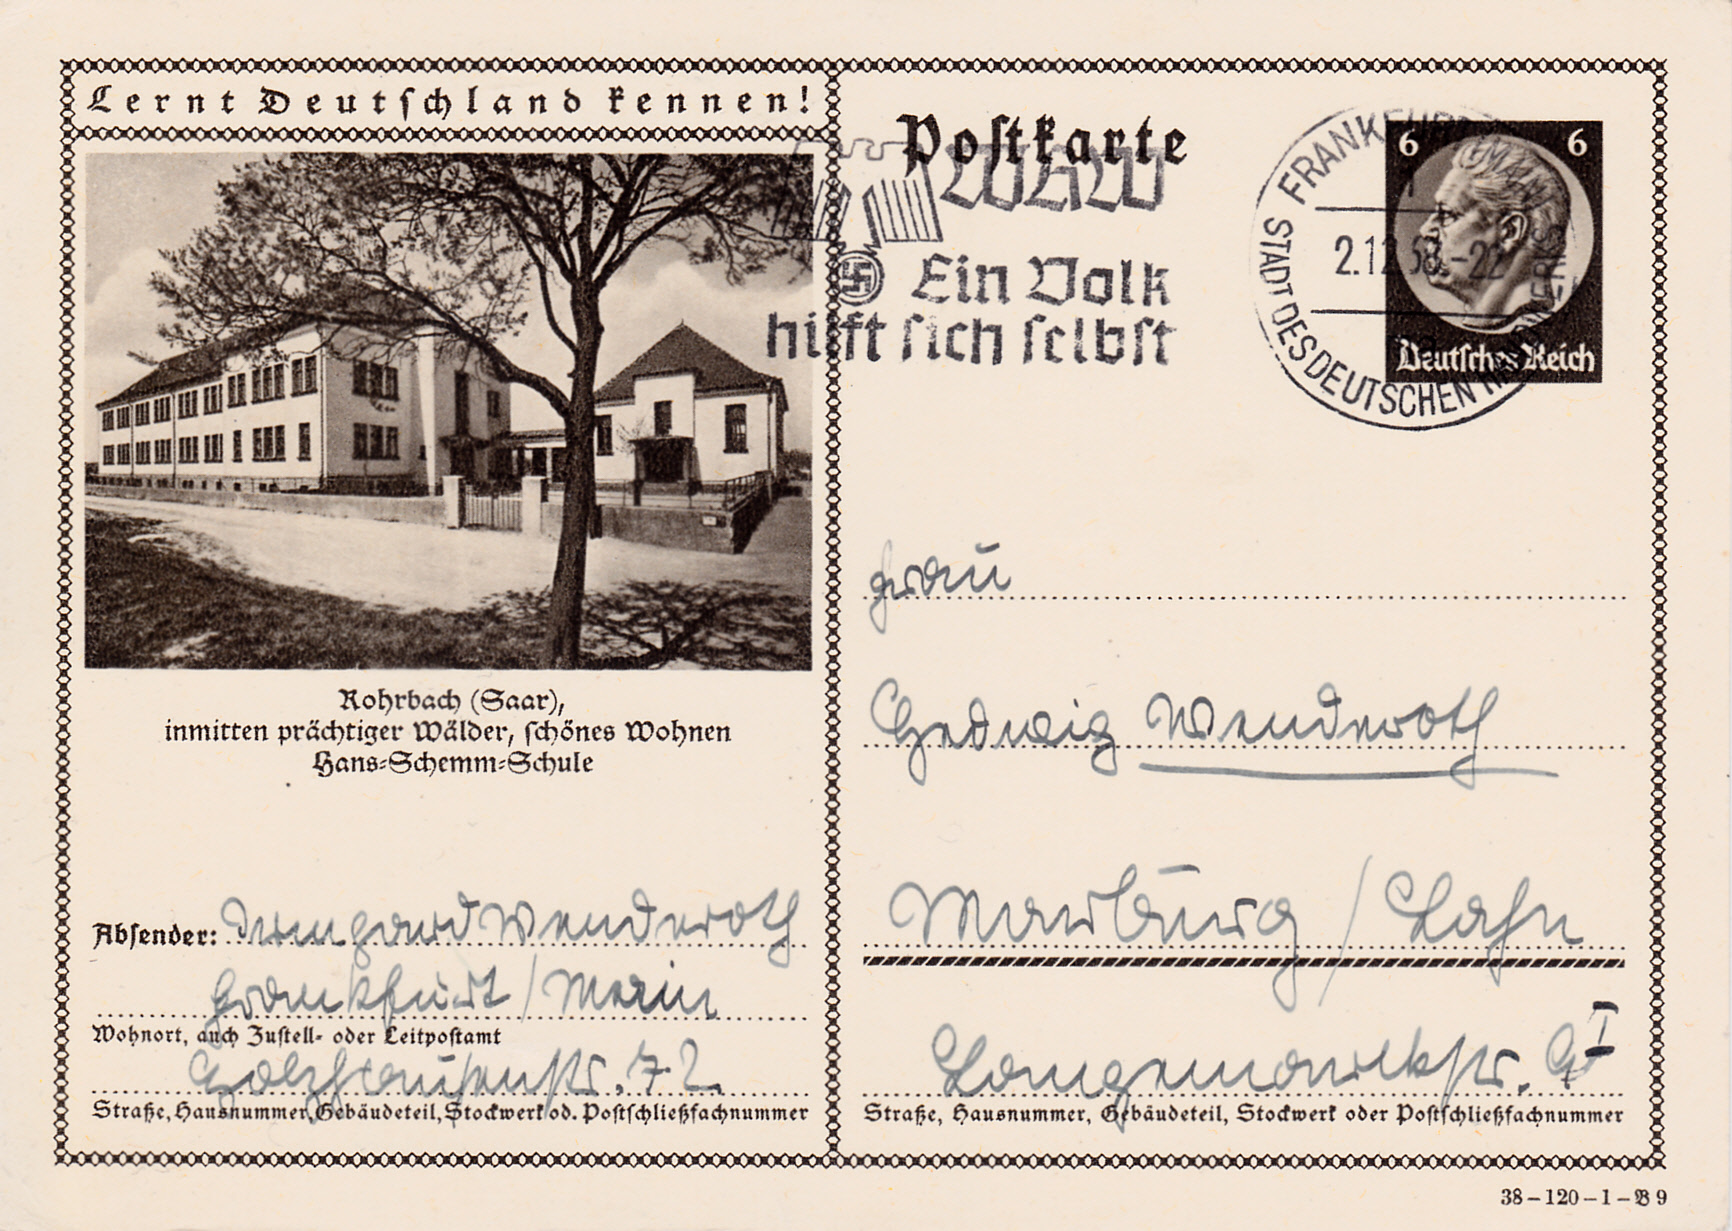 Lernt Deutschland kennen!
Rohrbach (Saar),
inmitten prächtiger Wälder, schönes Wohnen
Hans-Schemm-Schule
Absender: Irmgard Wenderoth
Frankfurt / Main
Wohnort, auch Zustell- oder Leitpostamt
Holzhausenstr. 72.
Straße, Hausnummer, Gebäudeteil, Stockwerk od. Postschließfachnummer
Postkarte
WHW
Ein Volk
hilft sich selbst
FRANKFURT
2.12.38.-22
STADT DES DEUTSCHEN HANDWERKS
6 6
Deutsches Reich
Frau
Hedwig Wenderoth
Marburg / Lahn
Langemarckstr.
I
Straße, Hausnummer, Gebäudeteil, Stockwerk oder Postschließfachnummer
38-120-1-B 9